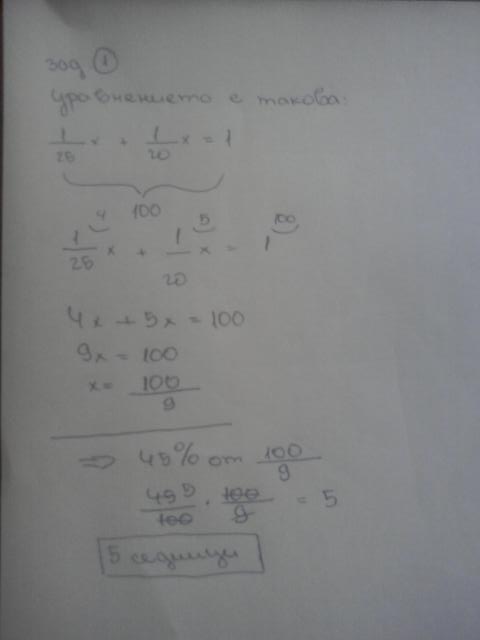 зад ①
уравнението е такова:
1/25 x + 1/20 x = 1
100
4 5 100
1/25 x + 1/20 x = 1
4x + 5x = 100
9x = 100
x = 100/9
⇒ 45% от 100/9
45 5/100 . 100/9 = 5
5 седмици